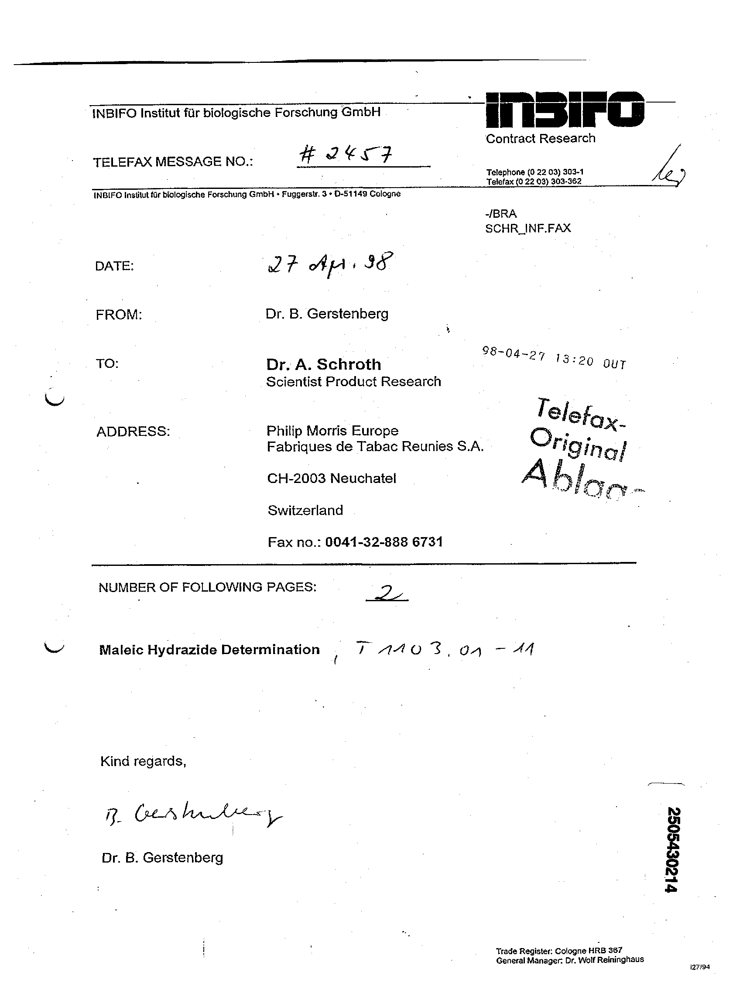 INBIFO Institut für biologische Forschung GmbH
INBIFO
Contract Research
TELEFAX MESSAGE NO.: # 2457
Telephone (0 22 03) 303-1
Telefax (0 22 03) 303-362
INBIFO Institut für biologische Forschung GmbH • Fuggerstr. 3 • D-51149 Cologne
-/BRA
SCHR_INF.FAX
DATE: 27 Apr. 98
FROM: Dr. B. Gerstenberg
98-04-27 13:20 OUT
TO: Dr. A. Schroth
Scientist Product Research
Telefax-
Original
Ablage
ADDRESS: Philip Morris Europe
Fabriques de Tabac Reunies S.A.
CH-2003 Neuchatel
Switzerland
Fax no.: 0041-32-888 6731
NUMBER OF FOLLOWING PAGES: 2
Maleic Hydrazide Determination , T 1103.01 - 11
Kind regards,
B. Gerstenberg
Dr. B. Gerstenberg
2505430214
Trade Register: Cologne HRB 367
General Manager: Dr. Wolf Reininghaus
I27/94